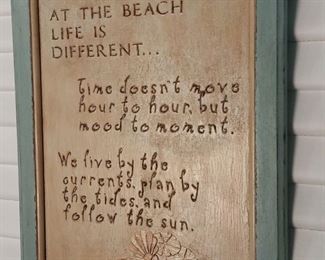 AT THE BEACH
LIFE IS
DIFFERENT...
Time doesn't move
hour to hour, but
mood to moment.
We live by the
currents, plan by
the tides, and
follow the sun.